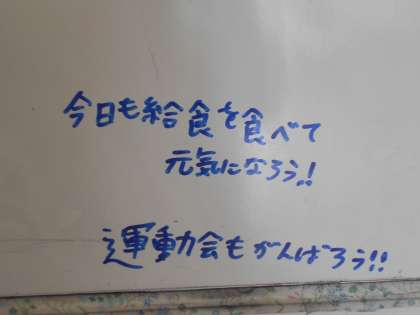 今日も給食を食べて
元気になろう!!
運動会もがんばろう!!